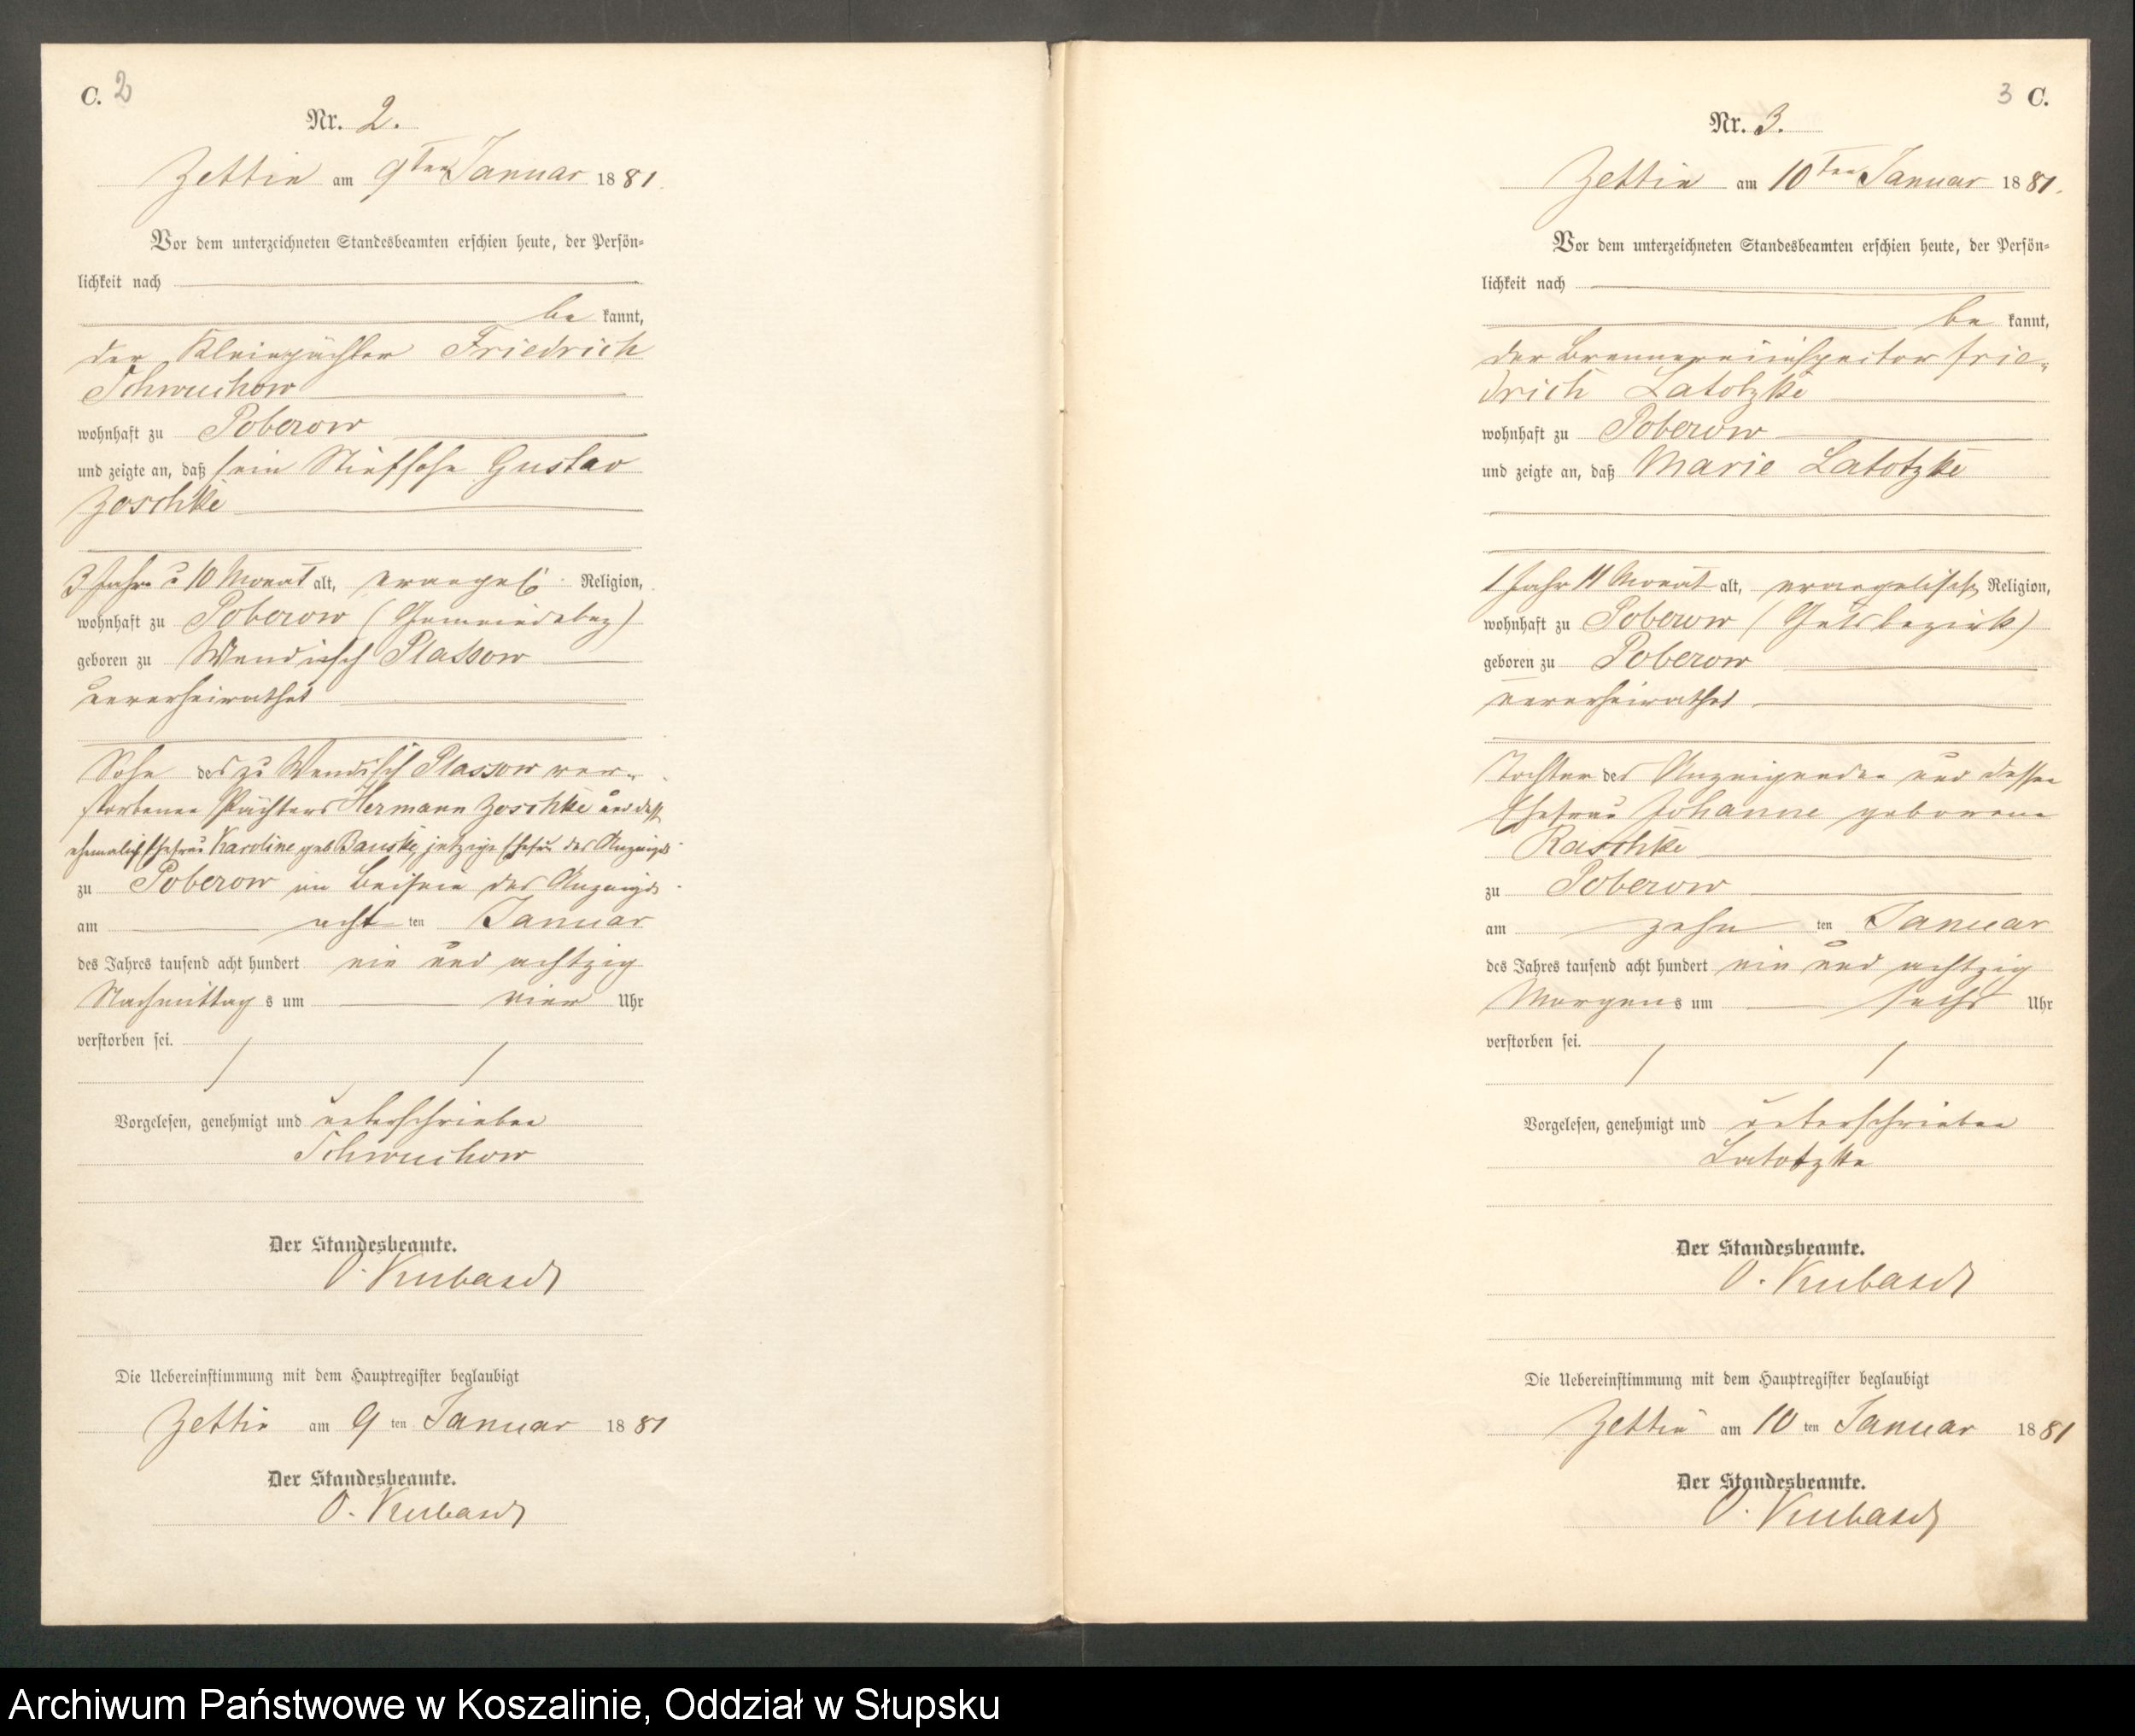 C. 2
Nr. 2.
Zettin am 9ten Januar 1881.
Vor dem unterzeichneten Standesbeamten erschien heute, der Persön-
lichkeit nach
be kannt,
der Kleinpächter Friedrich
Schwuchow
wohnhaft zu Poberow
und zeigte an, daß sein Stiefsohn Gustav
Zoschke
3 Jahre u 10 Monat alt, evangel. Religion,
wohnhaft zu Poberow (Gemeindebez)
geboren zu Wendisch Plassow
unverheirathet
Sohn des zu Wendisch Plassow ver-
storbenen Pächters Hermann Zoschke und dess
ehemalig Ehefrau Karoline geb Banske, jetzige Ehefr des Anzeigd
zu Poberow im Beisein des Anzeigds
am acht ten Januar
des Jahres tausend acht hundert ein und achtzig
Nachmittag s um vier Uhr
verstorben sei.
Vorgelesen, genehmigt und unterschrieben
Schwuchow
Der Standesbeamte.
O. Kubasch
Die Uebereinstimmung mit dem Hauptregister beglaubigt
Zettin am 9 ten Januar 1881
Der Standesbeamte.
O. Kubasch
3 C.
Nr. 3.
Zettin am 10ten Januar 1881.
Vor dem unterzeichneten Standesbeamten erschien heute, der Persön-
lichkeit nach
be kannt,
der Brennereiinspector Frie-
drich Latotzke
wohnhaft zu Poberow
und zeigte an, daß Marie Latotzke
1 Jahr 11 Monat alt, evangelische Religion,
wohnhaft zu Poberow (Gutsbezirk)
geboren zu Poberow
unverheirathet
Tochter des Anzeigenden und dessen
Ehefrau Johanne geborene
Raschke
zu Poberow
am zehn ten Januar
des Jahres tausend acht hundert ein und achtzig
Morgen s um sechs Uhr
verstorben sei.
Vorgelesen, genehmigt und unterschrieben
Latotzke
Der Standesbeamte.
O. Kubasch
Die Uebereinstimmung mit dem Hauptregister beglaubigt
Zettin am 10 ten Januar 1881
Der Standesbeamte.
O. Kubasch
Archiwum Państwowe w Koszalinie, Oddział w Słupsku